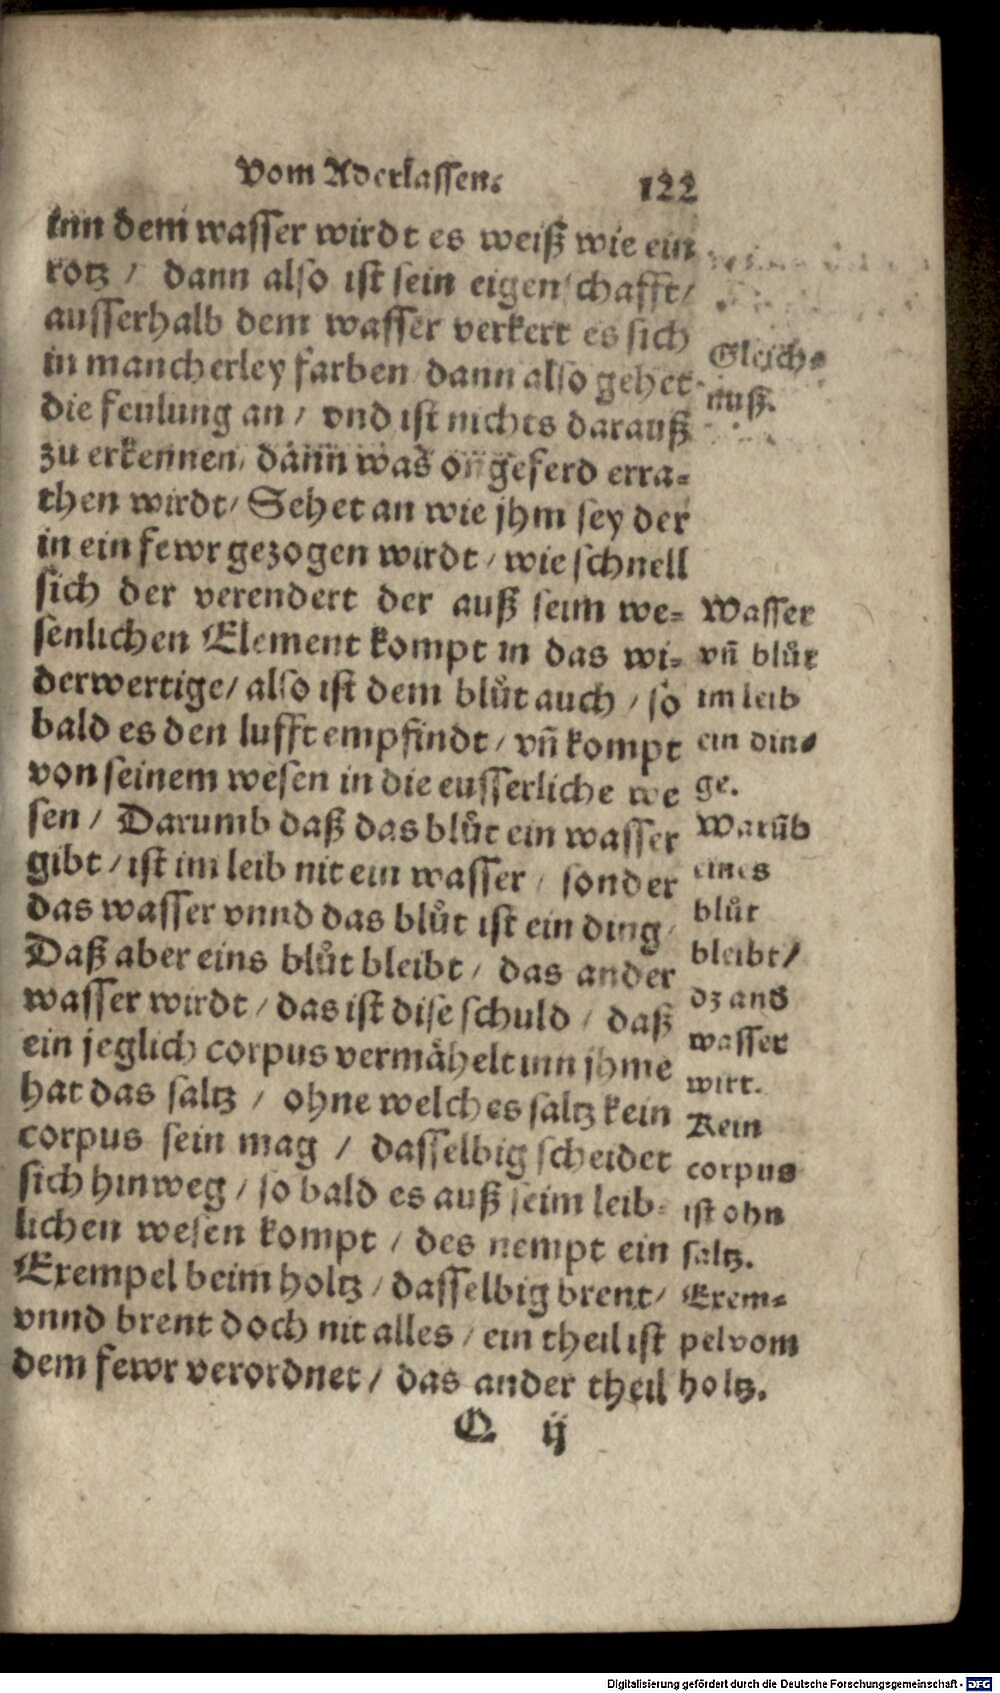 Vom Aderlassen.
122
inn dem wasser wirdt es weiß wie ein
rotz / dann also ist sein eigenschafft/
ausserhalb dem wasser verkert es sich
in mancherley farben dann also gehet
die feulung an / vnd ist nichts darauß
zu erkennen, dann was ongeferd erra=
then wirdt/ Sehet an wie jhm sey der
in ein fewr gezogen wirdt / wie schnell
sich der verendert der auß seim we=
senlichen Element kompt in das wi=
derwertige/ also ist dem blůt auch / so
bald es den lufft empfindt / vñ kompt
von seinem wesen in die eusserliche we
sen / Darumb daß das blůt ein wasser
gibt / ist im leib nit ein wasser / sonder
das wasser vnnd das blůt ist ein ding/
Daß aber eins blůt bleibt / das ander
wasser wirdt / das ist dise schuld / daß
ein jeglich corpus vermåhelt inn jhme
hat das saltz / ohne welches saltz kein
corpus sein mag / dasselbig scheidet
sich hinweg / so bald es auß seim leib=
lichen wesen kompt / des nempt ein
Exempel beim holtz / dasselbig brent/
vnnd brent doch nit alles / ein theil ist
dem fewr verordnet / das ander theil
Q ij
Gleich=
nuß.
Wasser
vñ blůt
im leib
ein din=
ge.
Warũb
eines
blůt
bleibt/
dz and
wasser
wirt.
Kein
corpus
ist ohn
saltz.
Exem=
pel vom
holtz.
Digitalisierung gefördert durch die Deutsche Forschungsgemeinschaft - DFG